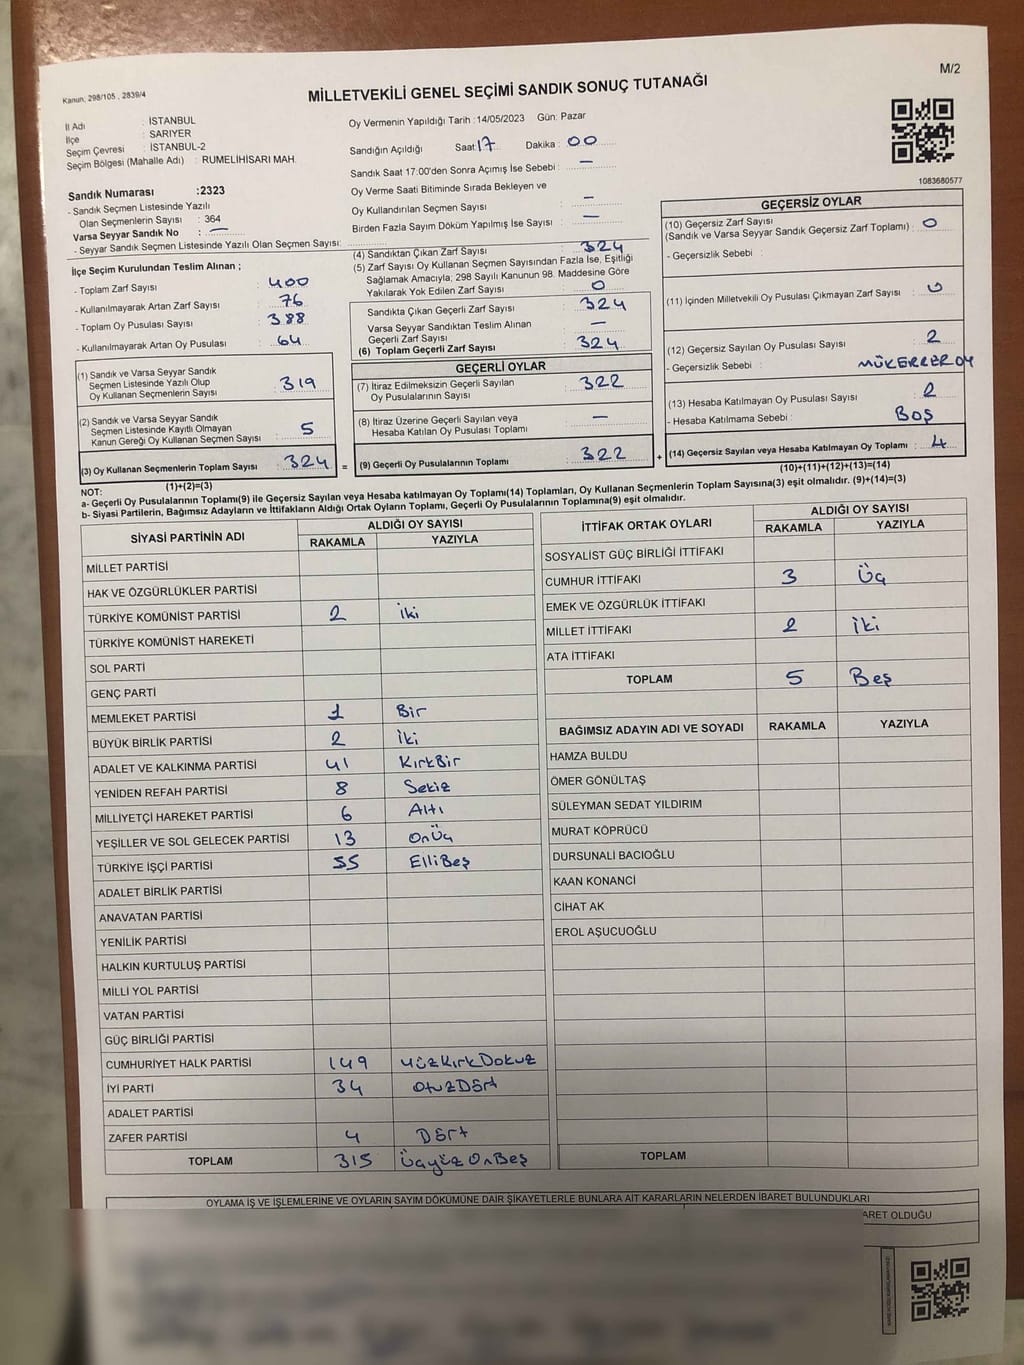 M/2
Kanun; 298/105 , 2839/4
MİLLETVEKİLİ GENEL SEÇİMİ SANDIK SONUÇ TUTANAĞI
İl Adı : İSTANBUL
İlçe : SARIYER
Seçim Çevresi : İSTANBUL-2
Seçim Bölgesi (Mahalle Adı) : RUMELİHİSARI MAH.
Sandık Numarası :2323
- Sandık Seçmen Listesinde Yazılı
Olan Seçmenlerin Sayısı : 364
Varsa Seyyar Sandık No : —
- Seyyar Sandık Seçmen Listesinde Yazılı Olan Seçmen Sayısı:
Oy Vermenin Yapıldığı Tarih :14/05/2023 Gün: Pazar
Sandığın Açıldığı Saat: 17 Dakika : 00
Sandık Saat 17:00'den Sonra Açımış İse Sebebi : —
Oy Verme Saati Bitiminde Sırada Bekleyen ve
Oy Kullandırılan Seçmen Sayısı : —
Birden Fazla Sayım Döküm Yapılmış İse Sayısı : —
1083680577
İlçe Seçim Kurulundan Teslim Alınan ;
- Toplam Zarf Sayısı : 400
- Kullanılmayarak Artan Zarf Sayısı : 76
- Toplam Oy Pusulası Sayısı : 388
- Kullanılmayarak Artan Oy Pusulası : 64
(1) Sandık ve Varsa Seyyar Sandık
Seçmen Listesinde Yazılı Olup
Oy Kullanan Seçmenlerin Sayısı : 319
(2) Sandık ve Varsa Seyyar Sandık
Seçmen Listesinde Kayıtlı Olmayan
Kanun Gereği Oy Kullanan Seçmen Sayısı : 5
(3) Oy Kullanan Seçmenlerin Toplam Sayısı : 324 =
(1)+(2)=(3)
(4) Sandıktan Çıkan Zarf Sayısı : 324
(5) Zarf Sayısı Oy Kullanan Seçmen Sayısından Fazla İse, Eşitliği
Sağlamak Amacıyla; 298 Sayılı Kanunun 98. Maddesine Göre
Yakılarak Yok Edilen Zarf Sayısı : 0
Sandıkta Çıkan Geçerli Zarf Sayısı : 324
Varsa Seyyar Sandıktan Teslim Alınan
Geçerli Zarf Sayısı : —
(6) Toplam Geçerli Zarf Sayısı : 324
GEÇERLİ OYLAR
(7) İtiraz Edilmeksizin Geçerli Sayılan
Oy Pusulalarının Sayısı : 322
(8) İtiraz Üzerine Geçerli Sayılan veya
Hesaba Katılan Oy Pusulası Toplamı : —
(9) Geçerli Oy Pusulalarının Toplamı : 322 +
GEÇERSİZ OYLAR
(10) Geçersiz Zarf Sayısı
(Sandık ve Varsa Seyyar Sandık Geçersiz Zarf Toplamı) : 0
- Geçersizlik Sebebi :
(11) İçinden Milletvekili Oy Pusulası Çıkmayan Zarf Sayısı : 0
(12) Geçersiz Sayılan Oy Pusulası Sayısı : 2
- Geçersizlik Sebebi : MÜKERRER OY
(13) Hesaba Katılmayan Oy Pusulası Sayısı : 2
- Hesaba Katılmama Sebebi : BOŞ
(14) Geçersiz Sayılan veya Hesaba Katılmayan Oy Toplamı : 4
(10)+(11)+(12)+(13)=(14)
NOT:
a- Geçerli Oy Pusulalarının Toplamı(9) ile Geçersiz Sayılan veya Hesaba katılmayan Oy Toplamı(14) Toplamları, Oy Kullanan Seçmenlerin Toplam Sayısına(3) eşit olmalıdır. (9)+(14)=(3)
b- Siyasi Partilerin, Bağımsız Adayların ve İttifakların Aldığı Ortak Oyların Toplamı, Geçerli Oy Pusulalarının Toplamına(9) eşit olmalıdır.
SİYASİ PARTİNİN ADI ALDIĞI OY SAYISI
RAKAMLA YAZIYLA
MİLLET PARTİSİ
HAK VE ÖZGÜRLÜKLER PARTİSİ
TÜRKİYE KOMÜNİST PARTİSİ 2 İki
TÜRKİYE KOMÜNİST HAREKETİ
SOL PARTİ
GENÇ PARTİ
MEMLEKET PARTİSİ 1 Bir
BÜYÜK BİRLİK PARTİSİ 2 İki
ADALET VE KALKINMA PARTİSİ 41 KırkBir
YENİDEN REFAH PARTİSİ 8 Sekiz
MİLLİYETÇİ HAREKET PARTİSİ 6 Altı
YEŞİLLER VE SOL GELECEK PARTİSİ 13 OnÜç
TÜRKİYE İŞÇİ PARTİSİ 55 ElliBeş
ADALET BİRLİK PARTİSİ
ANAVATAN PARTİSİ
YENİLİK PARTİSİ
HALKIN KURTULUŞ PARTİSİ
MİLLİ YOL PARTİSİ
VATAN PARTİSİ
GÜÇ BİRLİĞİ PARTİSİ
CUMHURİYET HALK PARTİSİ 149 YüzKırkDokuz
İYİ PARTİ 34 OtuzDört
ADALET PARTİSİ
ZAFER PARTİSİ 4 Dört
TOPLAM 315 ÜçyüzOnBeş
İTTİFAK ORTAK OYLARI ALDIĞI OY SAYISI
RAKAMLA YAZIYLA
SOSYALİST GÜÇ BİRLİĞİ İTTİFAKI
CUMHUR İTTİFAKI 3 Üç
EMEK VE ÖZGÜRLÜK İTTİFAKI
MİLLET İTTİFAKI 2 İki
ATA İTTİFAKI
TOPLAM 5 Beş
BAĞIMSIZ ADAYIN ADI VE SOYADI RAKAMLA YAZIYLA
HAMZA BULDU
ÖMER GÖNÜLTAŞ
SÜLEYMAN SEDAT YILDIRIM
MURAT KÖPRÜCÜ
DURSUNALİ BACIOĞLU
KAAN KONANCİ
CİHAT AK
EROL AŞUCUOĞLU
TOPLAM
OYLAMA İŞ VE İŞLEMLERİNE VE OYLARIN SAYIM DÖKÜMÜNE DAİR ŞİKAYETLERLE BUNLARA AİT KARARLARIN NELERDEN İBARET BULUNDUKLARI
ARET OLDUĞU